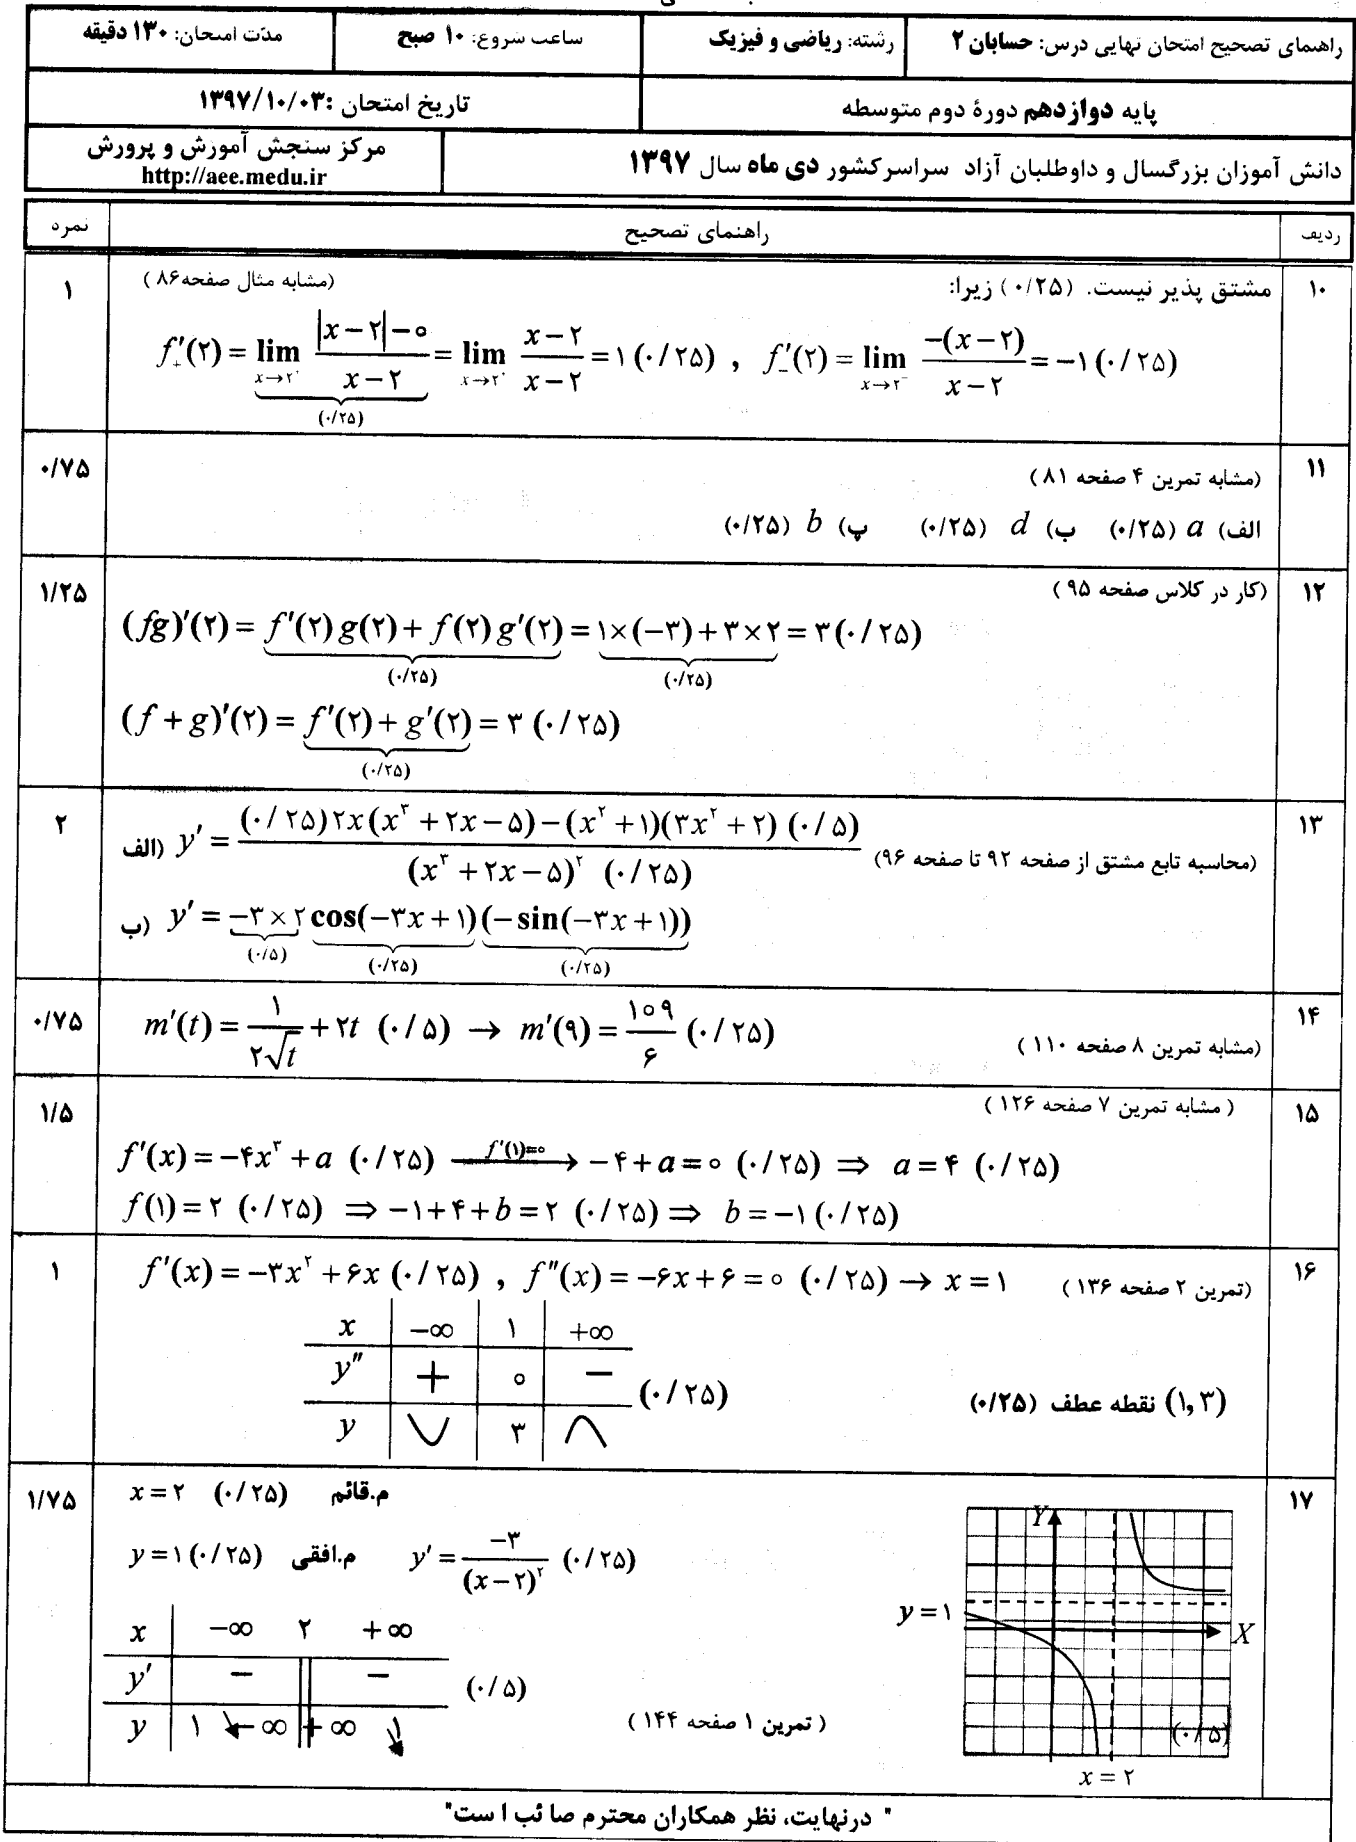 راهنمای تصحیح امتحان نهایی درس: حسابان ۲ رشته: ریاضی و فیزیک ساعت شروع: ۱۰ صبح مدّت امتحان: ۱۳۰ دقیقه
پایه دوازدهم دورهٔ دوم متوسطه تاریخ امتحان :۱۳۹۷/۱۰/۰۳
دانش آموزان بزرگسال و داوطلبان آزاد سراسرکشور دی ماه سال ۱۳۹۷ مرکز سنجش آموزش و پرورش
http://aee.medu.ir
ردیف راهنمای تصحیح نمره
۱۰ مشتق پذیر نیست. (۰/۲۵) زیرا: (مشابه مثال صفحه۸۶) ۱
f'₊(۲) = lim x→۲⁺ (|x−۲|−۰)/(x−۲) = lim x→۲⁺ (x−۲)/(x−۲) = ۱ (۰/۲۵) , f'₋(۲) = lim x→۲⁻ −(x−۲)/(x−۲) = −۱ (۰/۲۵)
(۰/۲۵)
۱۱ (مشابه تمرین ۴ صفحه ۸۱) ۰/۷۵
الف) a (۰/۲۵) ب) d (۰/۲۵) پ) b (۰/۲۵)
۱۲ (کار در کلاس صفحه ۹۵) ۱/۲۵
(fg)'(۲) = f'(۲)g(۲) + f(۲)g'(۲) = ۱×(−۳)+۳×۲ = ۳ (۰/۲۵)
(۰/۲۵) (۰/۲۵)
(f+g)'(۲) = f'(۲)+g'(۲) = ۳ (۰/۲۵)
(۰/۲۵)
۱۳ (محاسبه تابع مشتق از صفحه ۹۲ تا صفحه ۹۶) ۲
الف) y' = (۰/۲۵) ۲x(x³+۲x−۵)−(x²+۱)(۳x²+۲) (۰/۵) / (x³+۲x−۵)² (۰/۲۵)
ب) y' = −۳×۲ cos(−۳x+۱)(−sin(−۳x+۱))
(۰/۵) (۰/۲۵) (۰/۲۵)
۱۴ (مشابه تمرین ۸ صفحه ۱۱۰) m'(t) = ۱/(۲√t) + ۲t (۰/۵) → m'(۹) = ۱۰۹/۶ (۰/۲۵) ۰/۷۵
۱۵ (مشابه تمرین ۷ صفحه ۱۲۶) ۱/۵
f'(x) = −۴x³+a (۰/۲۵) f'(۱)=۰ → −۴+a=۰ (۰/۲۵) ⇒ a=۴ (۰/۲۵)
f(۱)=۲ (۰/۲۵) ⇒ −۱+۴+b=۲ (۰/۲۵) ⇒ b=−۱ (۰/۲۵)
۱۶ (تمرین ۲ صفحه ۱۳۶) f'(x) = −۳x²+۶x (۰/۲۵) , f''(x) = −۶x+۶=۰ (۰/۲۵) → x=۱ ۱
x −∞ ۱ +∞
y'' + ۰ − (۰/۲۵)
(۱,۳) نقطه عطف (۰/۲۵)
y ∪ ۳ ∩
۱۷ x=۲ (۰/۲۵) م.قائم ۱/۷۵
y=۱ (۰/۲۵) م.افقی y' = −۳/(x−۲)² (۰/۲۵)
x −∞ ۲ +∞
y' − − (۰/۵)
y ۱ ↘ −∞ +∞ ↘ ۱
(تمرین ۱ صفحه ۱۴۴)
Y
y=۱
X
(۰/۵)
x=۲
" درنهایت، نظر همکاران محترم صائب است"